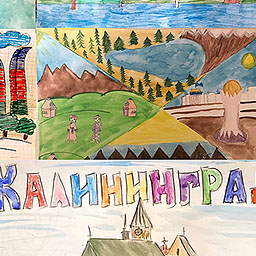 КАЛИНИНГРА